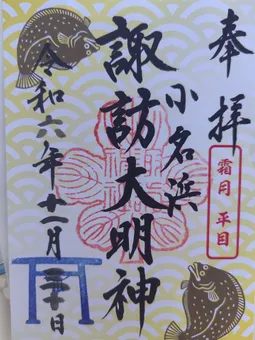 奉拝
霜月 平目
小名浜
諏訪大明神
令和六年十一月三十日